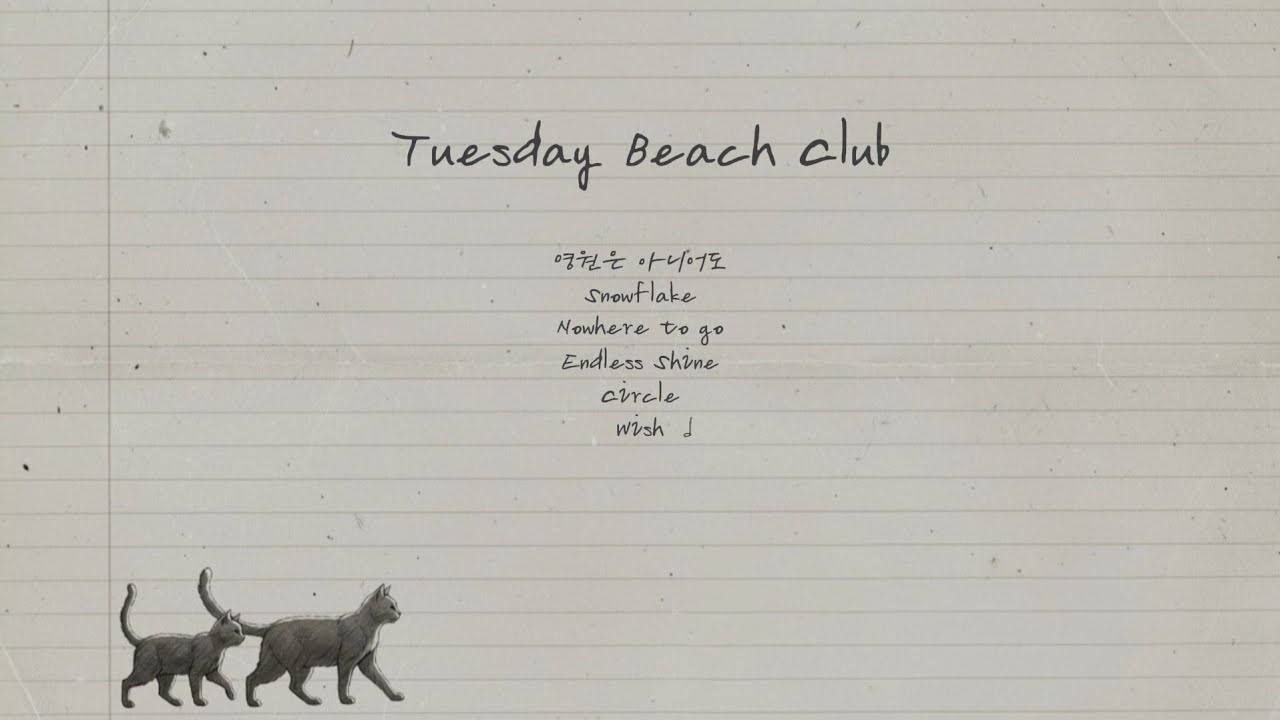 Tuesday Beach Club
영원은 아니어도
Snowflake
Nowhere to go
Endless shine
circle
wish ♩